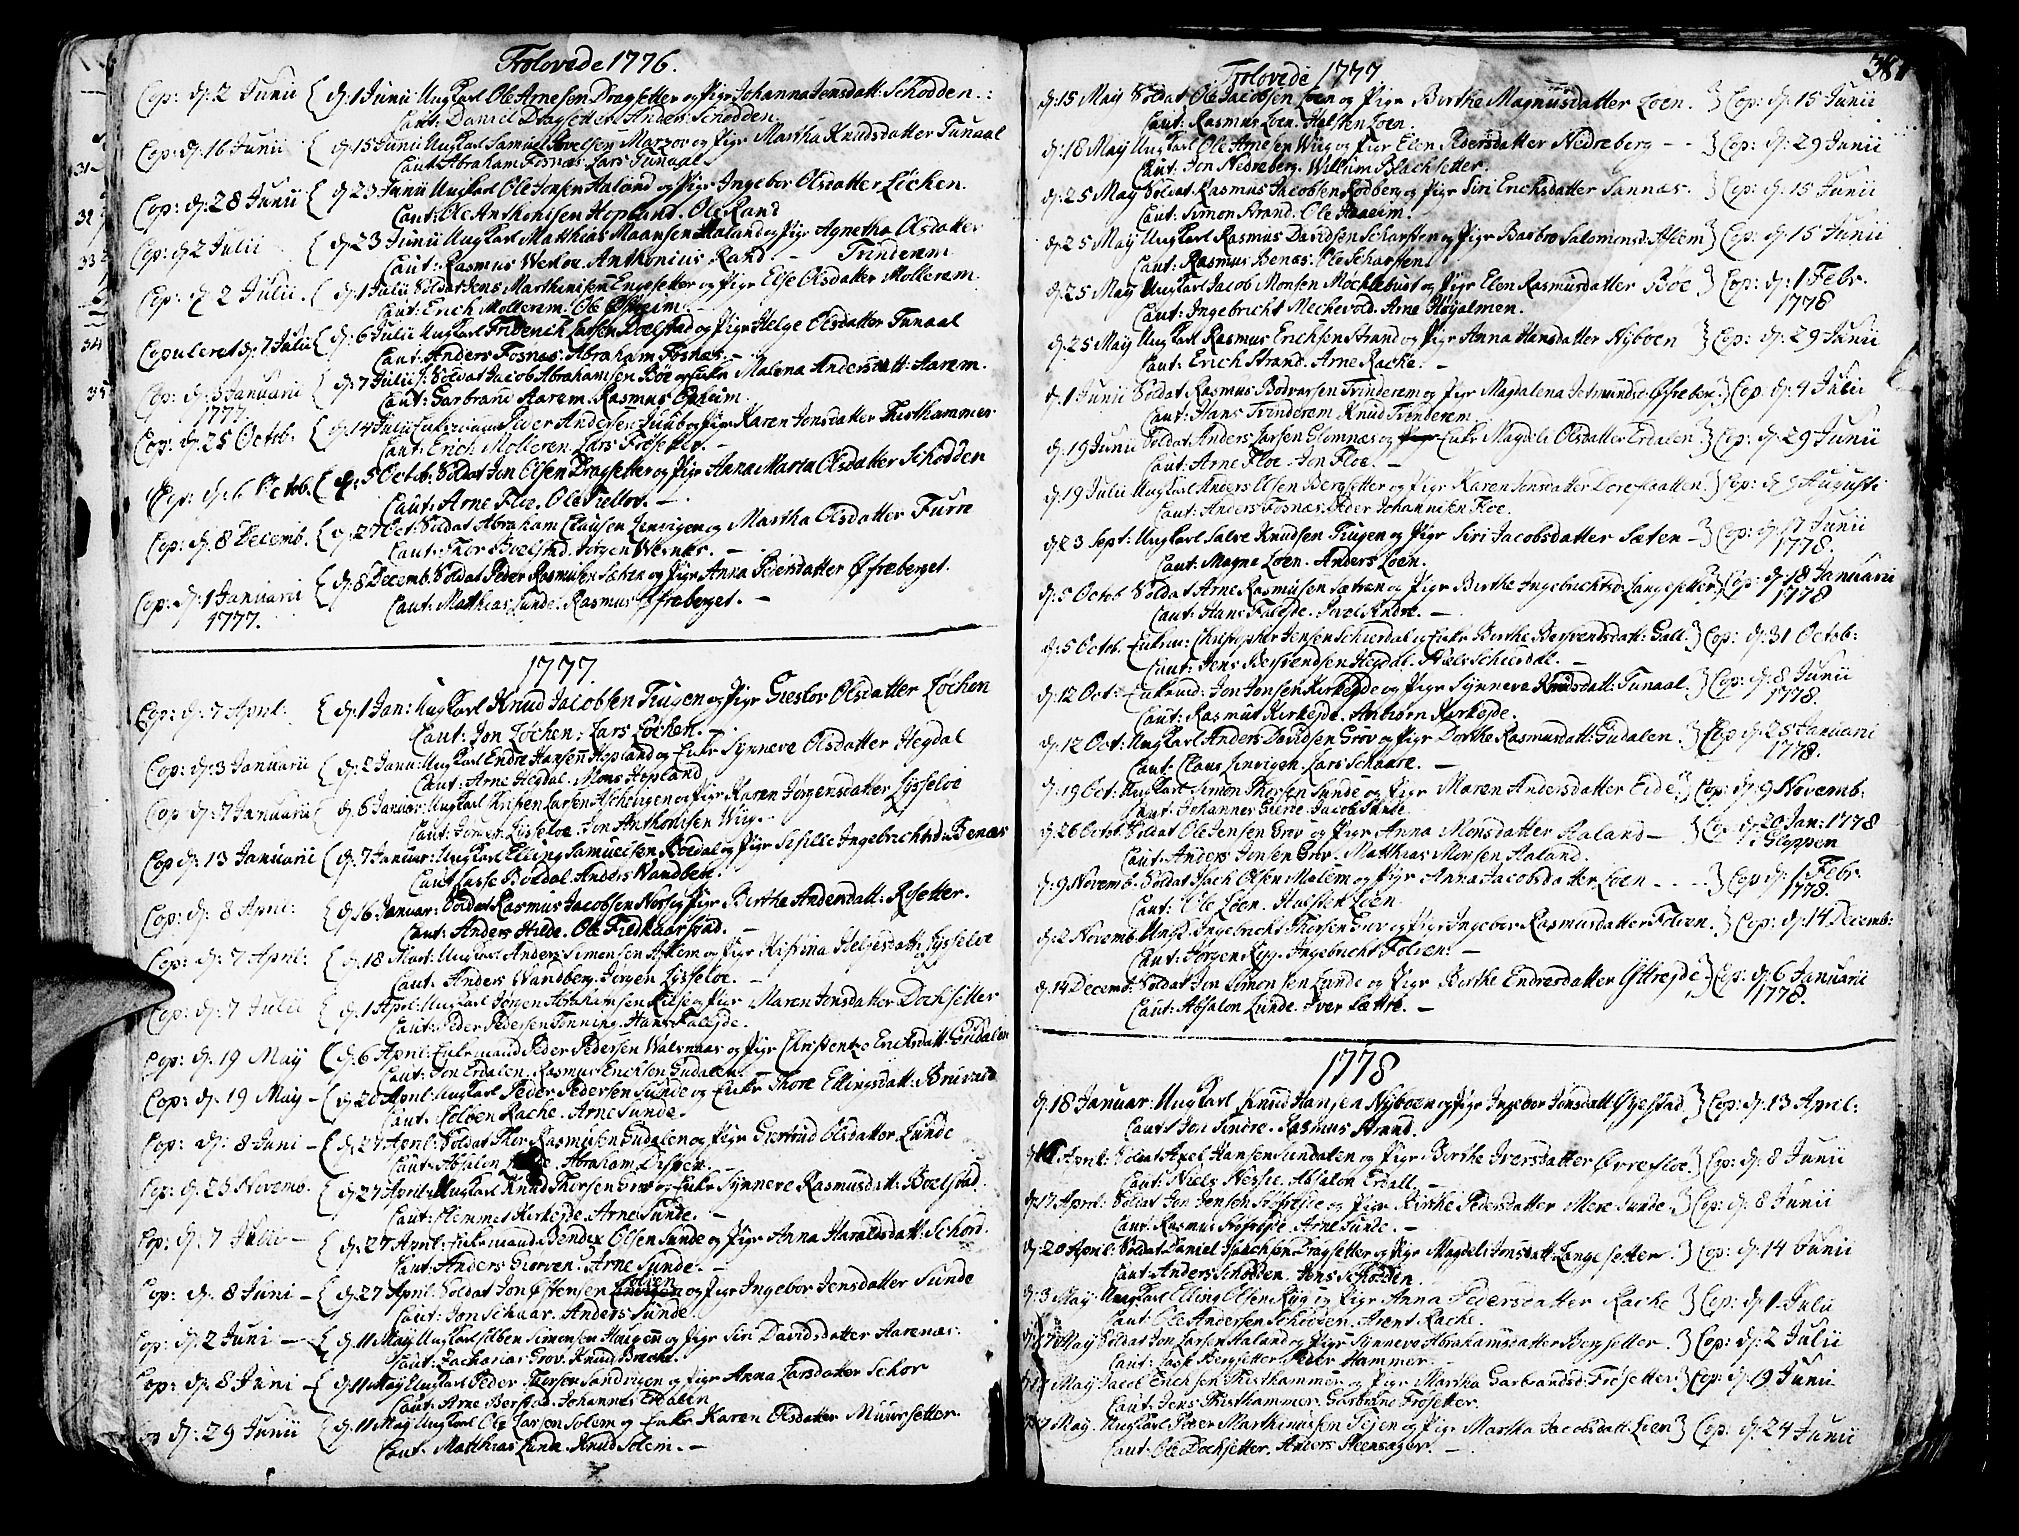 Trolovede 1776.
Cop: d. 2 Junii { d. 1 Junii Ungkarl Ole Arnesen Dragsetter og Pige Johanna Jensdatt: Schodden.
Caut: Daniel Dragsetter. Anders Schodden.
Cop: d. 16 Junii { d. 15 Junii Ungkarl Samuel Povelsen og Pige Martha Knudsdatter Tunaal
Caut: Abraham Fosnæs. Lars Tunaal.
Cop: d. 28 Junii { d. 23 Junii Ungkarl Ole Jonsen Haland og Pige Ingebor Olsdatter Løchen.
Caut: Ole Anthonisen Hopland. Ole Rand
Cop: d. 2 Julii { d. 23 Junii Ungkarl Matthias Maansen Haland og Pige Agnetha Olsdatter
Caut: Rasmus Anthonius Rand — Trinderem.
Cop: d. 2 Julii. { d. 1 Julii Soldat Jens Marthinusen Engesetter og Pige Else Olsdatter Mollerem.
Caut: Erich Mollerem. Ole
Copuleret d. 7 Julii { d. 6 Julii Ungkarl Friderich Larsen Boelstad og Pige Helge Olsdatter Tunaal
Caut: Anders Fosnæs. Abraham Fosnæs. —
Cop: d. 3 Januarii { d. 7 Julii Soldat Jacob Abrahamsen Bøe og Enke Malena Andersdatt: Aarem.
1777. Caut: Garbrand Aarem. Rasmus
Cop: d. 25 Octob: { d. 14 Julii Enkemand Peder Andersen og Pige Karen Jonsdatter Tisthammer
Caut: Erich Molleren. Lars
Cop: d. 6 Octob. { d. 5 Octob: Soldat Jon Olsen Dragsetter og Pige Anna Maria Olsdatter Schodden
Caut: Arne Floe. Ole —
Cop: d. 8 Decemb. { d. 27 Oct: Soldat Abraham Clausen Linvigen og Martha Olsdatter Furn
Caut: Thor Boelstad. Jørgen —
Cop: d. 1 Januarii { d. 8 Decemb. Soldat Peder Rasmusen Sætren og Pige Anna Pedersdatter Øfreberget.
1777. Caut: Matthias Lunde. Rasmus Øfreberget. —
1777.
Cop: d. 7 April: { d. 1 Jan: Ungkarl Knud Jacobsen Tiugen og Pige Gieslov Olsdatter Løchen
Caut: Jon Løchen. Lars Løchen. —
Cop: d. 3 Januarii { d. 2 Janu: Ungkarl Endre Hansen Hopland og Enke Synneve Olsdatter Hegdal
Caut: Arne Hegdal. Mons Hopland
Cop d. 7 Januarii { d. 6 Januar: Ungkarl Larsen og Pige Karen Jørgensdatter Lysseloe
Caut: Lysseloe. Jon Anthonisen Wiig.
Cop d. 13 Januarii { d. 7 Januar: Ungkarl Elling Samuelsen Boedal og Pige Ingebrechtsd: Benæs
Caut: Lasse Boedal. Anders Vandberg.
Cop: d. 8 April: { d. 16 Januar: Soldat Rasmus Jacobsen og Pige Berthe Andersdatt: Rosetter.
Caut: Anders Hilde. Ole
Cop: d. 7 April: { d. 18 Mart: Ungkarl Anders Simonsen og Pige Kistina Lysseloe
Caut: Anders Vandberg. Jørgen Lysseloe. —
Cop: d. 7 Julii { d. 1 April: Ungkarl Jørgen Abrahamsen og Pige Maren Jonsdatter Dochsetter
Caut: Peder Pedersen Tonning. Hans Falejde.
Cop: d. 19 May { d. 6 April: Enkemand Peder Pedersen og Pige Christentze Erichsdatt: Gudalen
Caut: Jon Erdalen. Rasmus Erichsen Gudalen.
Cop: d. 19 May — { d. 20 April: Ungkarl Peder Pedersen Sunde og Enke Thore Ellingsdatt: Bruvold
Caut: Rache. Arne Sunde.
Cop: d. 8 Juni — { d. 27 April: Soldat Thor Rasmusen Gudalen og Pige Giertrud Olsdatter Lunde
Caut: Absalon Abraham
Cop: d. 23 Novemb. { d. 27 April: Ungkarl Knud Thorsen og Enke Synneve Rasmusdatt: Boelstad.
Caut: Clemmet Kirkejde. Arne Sunde. —
Cop: d. 7 Julii — { d. 27 April: Enkemand Bendix Olsen Sunde og Pige Anna Haraldsdatt:
Caut: Anders Arne Sunde. —
Cop: d. 8 Juni — { d. 27 April: Soldat Jon Østensen Folven og Pige Ingebor Jensdatter Sunde
Caut: Jon Schaar. Anders Sunde.
Cop: d. 2 Juni — { d. 11 May Ungkarl Simonsen og Pige Siri Davidsdatter Aarenæs.
Caut: Zacharias Grov. Knud
Cop: d. 8 Juni — { d. 11 May Ungkarl Peder Thorsen Sandvigen og Pige Anna Larsdatter
Caut: Arne Johannes Erdalen
d. 29 Junii { d. 11 May Ungkarl Ole Larsen Solem og Enke Karen Olsdatter Muursetter.
Caut: Matthias Linde. Knud Solem. —
Trolovede 1777
d. 15 May Soldat Ole Jacobsen Loen og Pige Berthe Magnusdatter Loen. } Cop: d. 15 Junii
Caut: Rasmus Loen. Halsten Loen
d. 18 May Ungkarl Ole Arnesen Wiig og Pige Elen Pedersdatter Nedreberg — } Cop: d. 29 Junii
Caut: Jon Nedreberg. Willum Blachsetter.
d. 25 May Soldat Rasmus Jacobsen Rodberg og Pige Siri Erichsdatter Sannæs. } Cop: d. 15 Junii
Caut: Simon Strand. Ole
d. 25 May Ungkarl Rasmus Davidsen Scharsten og Pige Barbro Salomonsd: } Cop: d. 15 Junii
Caut: Rasmus Benæs. Ole Scharsten.
d. 25 May Ungkarl Jacob Monsen Mochlebust og Pige Elen Rasmusdatter Bøe } Cop: d. 1 Febr.
Caut: Ingebricht Mechevold. Arne Høyalmen. 1778
d. 25 May Ungkarl Rasmus Erichsen Strand og Pige Anna Hansdatter Nyboen } Cop: d. 29 Junii
Caut: Erich Strand. Arne Rache. —
d. 1 Junii Soldat Rasmus Trinderem og Pige Magdalena Øfreberg. } Cop: d. 4 Julii
Caut: Hans Trinderem. Knud Trinderem
d. 19 Junii Soldat Anders Larsen Glomnæs og Enke Magdeli Olsdatter Erdalen } Cop: d. 29 Junii
Caut: Arne Floe. Jon Floe. —
d. 19 Julii Ungkarl Anders Olsen Bergsetter og Pige Karen Jonsdatter } Cop: d. 3 Augusti
Caut: Anders Fosnæs. Peder Johannisen Floe.
d. 23 Sept: Ungkarl Salve Knudsen Tiugen og Pige Siri Jacobsdatter Sæten — } Cop: d. 7 Junii
Caut: Magne Loen. Anders Loen. 1778.
d. 5 Octob Soldat Arne Rasmusen Sætren og Pige Berthe Ingebrichtsd: Langesetter } Cop: d. 18 Januarii
Caut: Hans Falejde. Povel Andre. — 1778
d. 5 Octb. Enkem: Christopher Jensen Schierdal og Enke Berthe Gall. } Cop: d. 31 Octob:
Caut: Jens Hegdal. Niels Schierdal. —
d. 12 Oct: Enkem: Jon Jonsen Kirkejde og Pige Synneve Knudsdatt: Tunaal. } Cop: d. 8 Junii
Caut: Rasmus Kirkejde. Anbiørn Kirkejde. 1778.
d. 12 Oct: Ungkarl Anders Davidsen Grov og Pige Dorthe Rasmusdatt: Gudalen. } Cop d. 25 Januarii
Caut: Claus Linvigen. Lars Schaare. — 1778.
d. 19 Oct: Ungkarl Simon Thorsen Sunde og Pige Maren Andersdatter Eide } Cop: d. 9 Novemb:
Caut: Johannes Jacob Sunde.
d. 26 Octob. Soldat Ole Jensen Grov og Pige Anna Monsdatter Haland — } Cop. d. 20 Jan: 1778
Caut: Anders Jonsen Grov. Matthias Monsen Haland. i Gloppen
d. 9 Novemb. Soldat Isach Olsen Melem og Pige Anna Jacobsdatter Loen — } Cop d. 1 Febr.
Caut: Ole Loen. Halsten Loen 1778.
d. 2 Novemb. Ungk. Ingebrecht Thorsen og Pige Ingebor Rasmusdatter Folven. } Cop: d. 14 Decemb:
Caut: Jørgen Ryg. Ingebricht Folven. —
d. 14 Decemb: Soldat Jon Simonsen Lunde og Pige Berthe Endresdatter } Cop: d. 6 Januarii
Caut: Absalon Lunde. Iver Sættre. — 1778.
1778
d. 18 Januar: Ungkarl Knud Hansen Nyboen og Pige Ingebor Jonsdatt: } Cop: d. 13 April:
Caut: Jon Rasmus Strand.
April: Soldat Axel Hansen Sundalen og Pige Berthe Iversdatter Øvrefloe. } Cop: d. 8 Junii
Caut: Niels Nessie. Absalon Erdall. —
d. 17 April: Soldat Jon Jensen og Pige Berthe Pedersdatter Mere Sunde. } Cop: d. 8 Junii
Caut: Rasmus Arne Sunde. —
d. 20 April: Soldat Daniel Isachsen Dragsetter og Pige Magdeli Jonsdatt: Langesetter. } Cop: d. 14 Junii
Caut: Anders Schodden. Jens Schodden.
d. 3 May. Ungkarl Elling Olsen Ryg og Pige Anna Pedersdatter Rache } Cop: d. 1 Julii
Caut: Ole Andersen Schodden. Arent Rache.
May Soldat Jon Larsen Haland og Pige Synneve Abrahamsdatter Bergsetter. } Cop: d. 2 Julii
Caut: Lasse Bergsetter. Peder Hammer. —
May Jacob Erichsen Tisthammer og Pige Martha Garbrandsd: Frøsetter. } Cop: d. 19 Junii
Caut: Jens Tisthammer. Garbrand Frøsetter.
May. Ungkarl Peder Marthinussen og Pige Martha Jacobsdatt: Loen } Cop: d. 24 Junii
Caut: Ole Dochsetter. Anders —